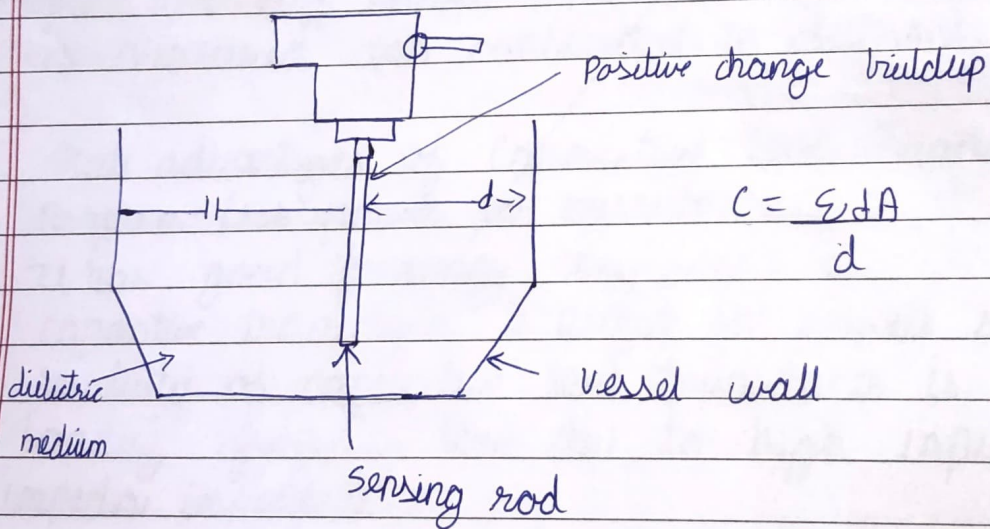 Positive change buildup
d
C = ΣdA
d
dielectric
medium
Vessel wall
Sensing rod